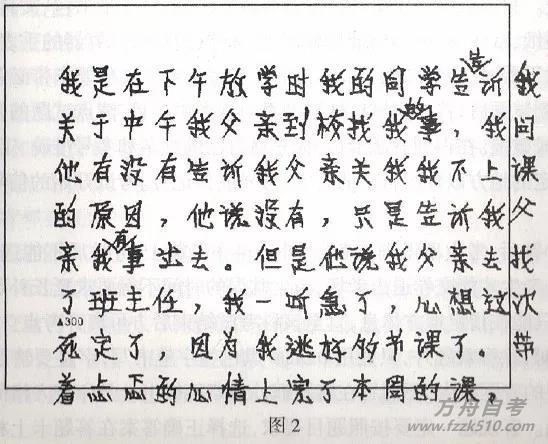 我是在下午放学时我的同学告诉我
关于中午我父亲到校找我事，我问
他有没有告诉我父亲关我我不上课
的原因，他说没有，只是告诉我父
亲我有事出去。但是他说我父亲去找
了班主任，我一听急了，心想这次
△300
死定了，因为我逃好的书课了。带
着忐忑的心情上完了本周的课，
图2
方舟自考
www.fzzk.cn